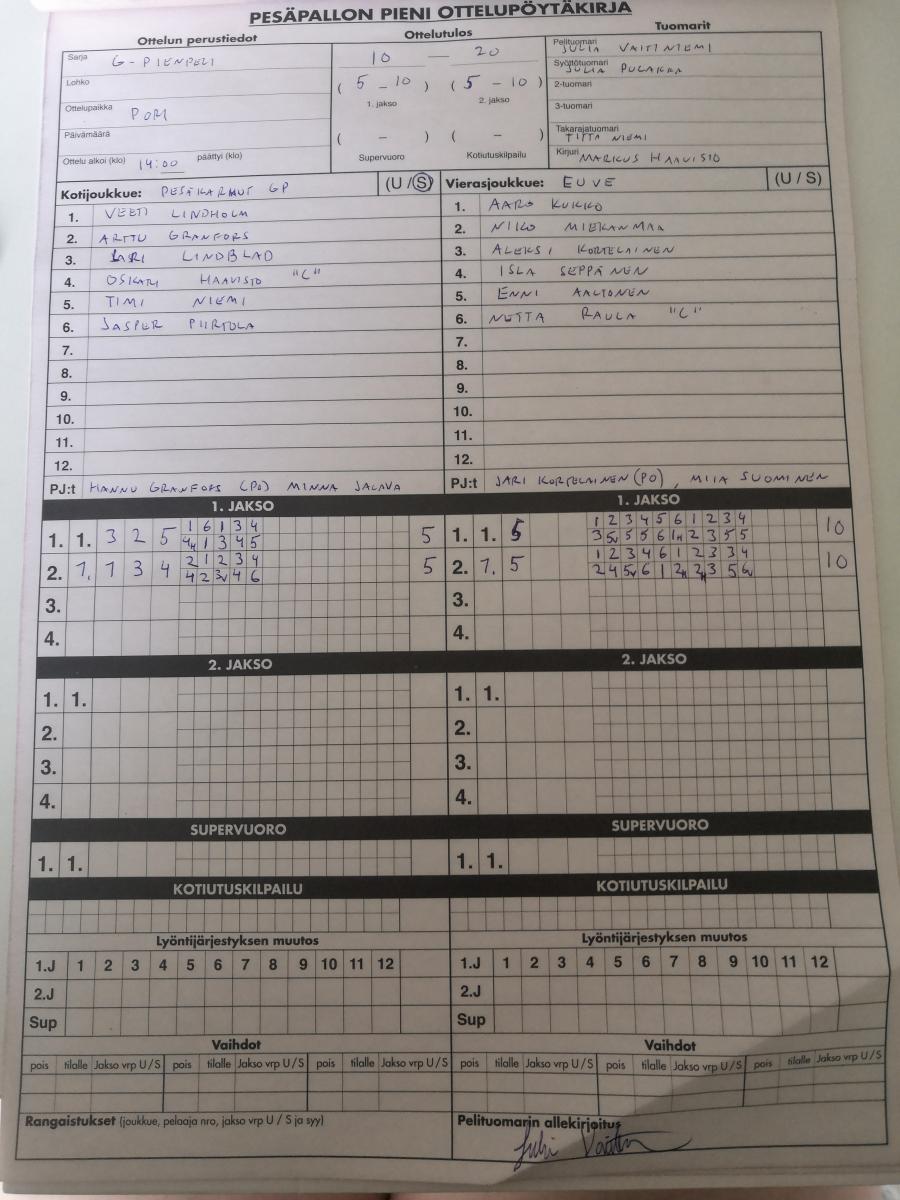 PESÄPALLON PIENI OTTELUPÖYTÄKIRJA
Ottelun perustiedot Ottelutulos Tuomarit
Sarja G-PIENPELI
Lohko
Ottelupaikka PORI
Päivämäärä
Ottelu alkoi (klo) 14:00 päättyi (klo)
10 — 20
( 5 – 10 ) ( 5 – 10 )
1. jakso 2. jakso
( – ) ( – )
Supervuoro Kotiutuskilpailu
Pelituomari JULIA VÄITINIEMI
Syöttötuomari JULIA PULAKKA
2-tuomari
3-tuomari
Takarajatuomari TIITA NIEMI
Kirjuri MARKUS HAAVISTO
Kotijoukkue: PESÄKARHUT GP (U / S)
1. VEETI LINDHOLM
2. ARTTU GRANFORS
3. JARI LINDBLAD
4. OSKARI HAAVISTO "C"
5. TIMI NIEMI
6. JASPER PIIRTOLA
7.
8.
9.
10.
11.
12.
PJ:t HANNU GRANFORS (PO) MINNA JALAVA
Vierasjoukkue: EUVE (U / S)
1. AARO KUKKO
2. NIKO MIEKANMAA
3. ALEKSI KORTELAINEN
4. ISLA SEPPÄNEN
5. ENNI AALTONEN
6. NETTA RAULA "C"
7.
8.
9.
10.
11.
12.
PJ:t JARI KORTELAINEN (PO), MIIA SUOMINEN
1. JAKSO
1. 1. 3 2 5 1 6 1 3 4 5
4 1 3 4 5
2. 1. 1 3 4 2 1 2 3 4 5
4 2 3v 4 6
3.
4.
1. JAKSO
1. 1. 5 1 2 3 4 5 6 1 2 3 4 10
3 5v 5 5 6 1 2 3 5 5
2. 1. 5 1 2 3 4 6 1 2 3 3 4 10
2 4 5v 6 1 2 2 3 5 6v
3.
4.
2. JAKSO
1. 1.
2.
3.
4.
2. JAKSO
1. 1.
2.
3.
4.
SUPERVUORO
1. 1.
SUPERVUORO
1. 1.
KOTIUTUSKILPAILU
KOTIUTUSKILPAILU
Lyöntijärjestyksen muutos
1.J 1 2 3 4 5 6 7 8 9 10 11 12
2.J
Sup
Lyöntijärjestyksen muutos
1.J 1 2 3 4 5 6 7 8 9 10 11 12
2.J
Sup
Vaihdot
pois tilalle Jakso vrp U / S pois tilalle Jakso vrp U / S pois tilalle Jakso vrp U / S
Vaihdot
pois tilalle Jakso vrp U / S pois tilalle Jakso vrp U / S pois tilalle Jakso vrp U / S
Rangaistukset (joukkue, pelaaja nro, jakso vrp U / S ja syy)
Pelituomarin allekirjoitus